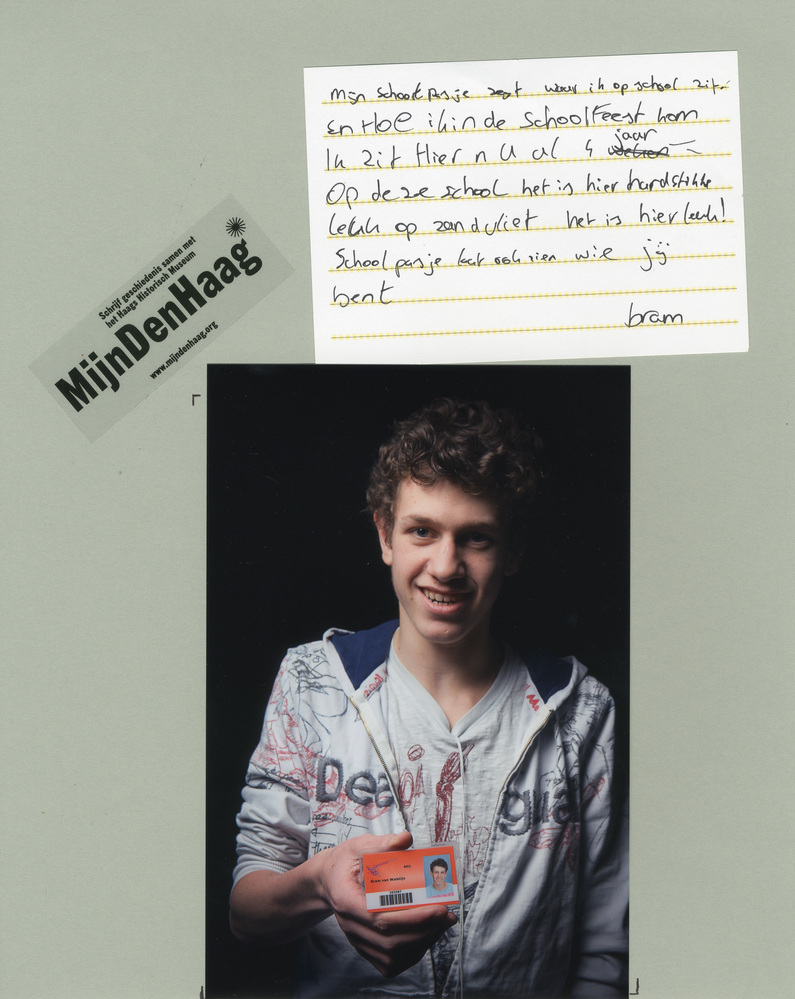 Mijn schoolpasje zegt waar ik op school zit.
en Hoe ik in de schoolfeest kom
Ik zit Hier n U al 4 jaar
Op deze school het is hier hardstikke
leuk op zandvliet het is hier leuk!
Schoolpasje laat ook zien wie jij
bent
bram
Schrijf geschiedenis samen met
het Haags Historisch Museum
MijnDenHaag
www.mijndenhaag.org
Dea
gua
Bram van